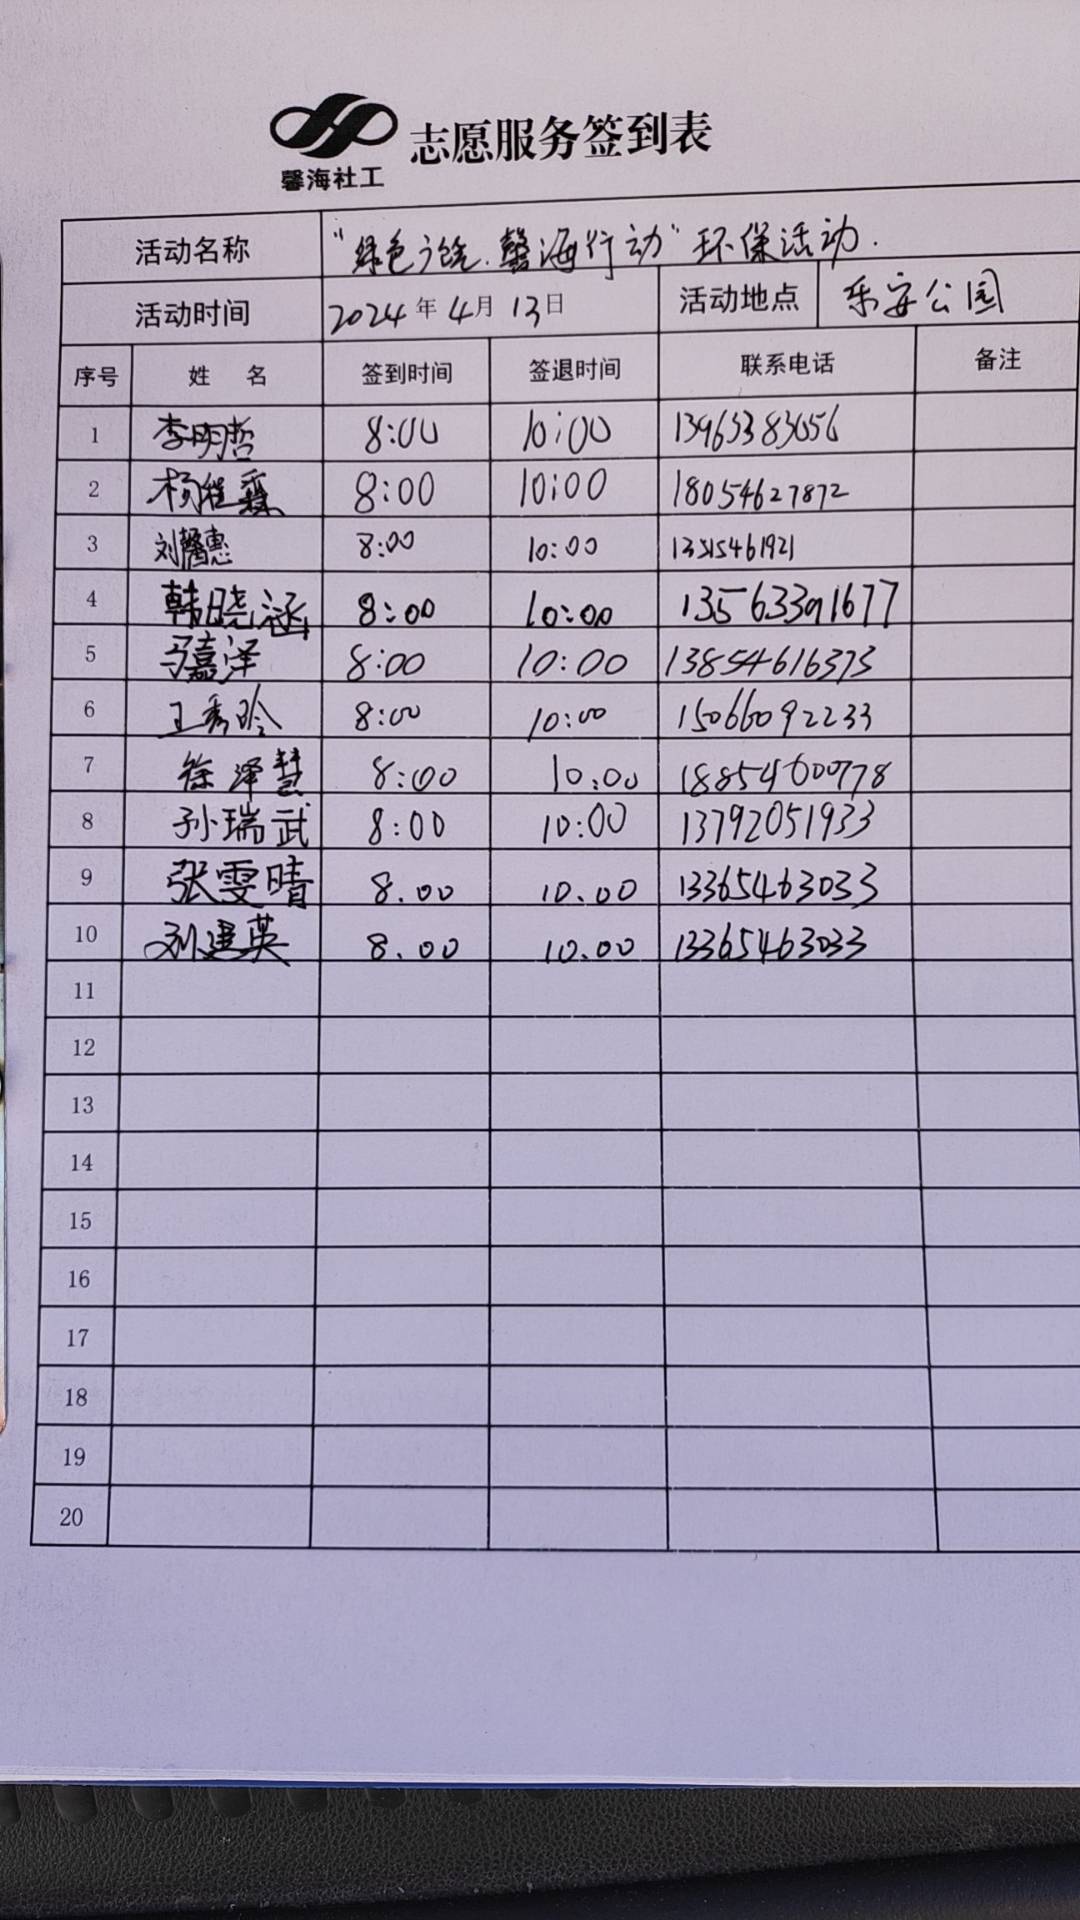 馨海社工
志愿服务签到表
活动名称 "绿色广饶.馨海行动"环保活动.
活动时间 2024年4月13日 活动地点 乐安公园
序号 姓 名 签到时间 签退时间 联系电话 备注
1 李明哲 8:00 10:00
2 8:00 10:00 18054627872
3 刘馨惠 8:00 10:00 13515461921
4 韩晓涵 8:00 10:00 13563391677
5 马嘉泽 8:00 10:00 13854616373
6 王秀玲 8:00 10:00 15066092233
7 徐泽慧 8:00 10:00 18854600778
8 孙瑞武 8:00 10:00 13792051933
9 张雯晴 8.00 10.00 13365463033
10 刘建英 8.00 10.00 13365463033
11
12
13
14
15
16
17
18
19
20